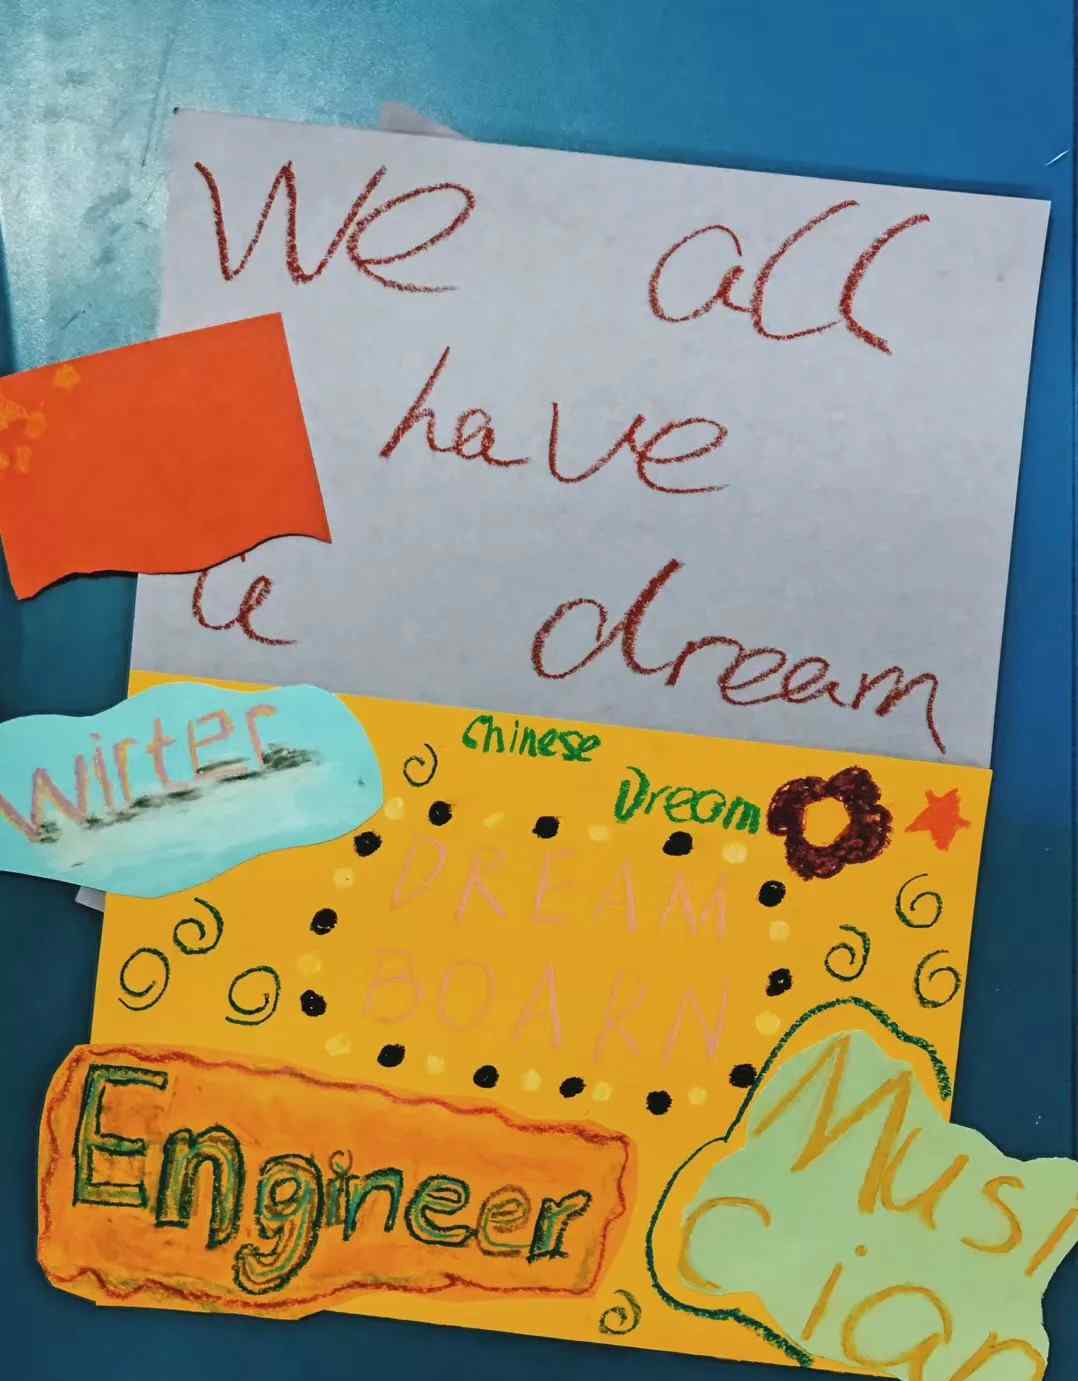 We all
have
a dream
Wirter
Chinese
Dream
DREAM
BOARN
Engineer
Musi
cian